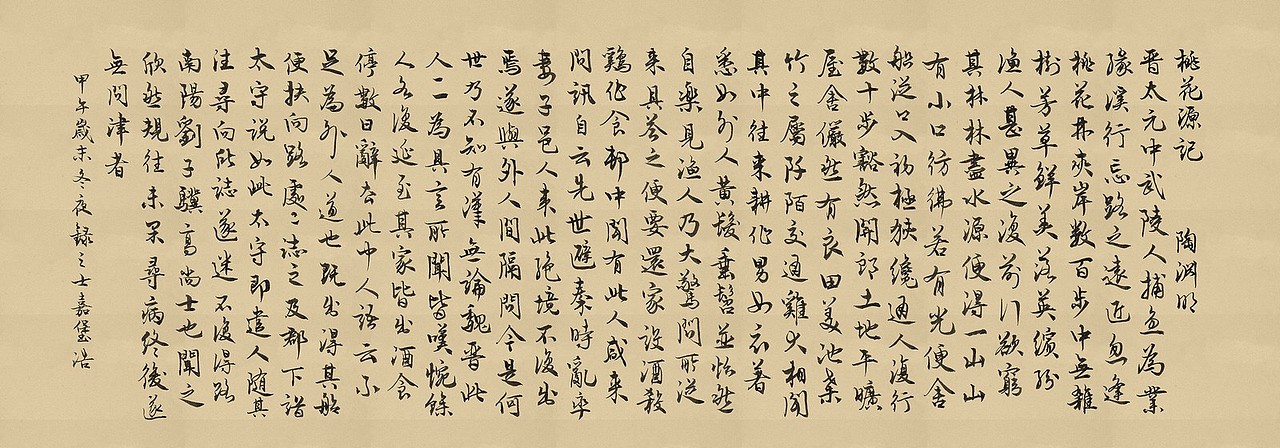 桃花源記 陶淵明
晉太元中武陵人捕魚為業
緣溪行忘路之遠近忽逢
桃花林夾岸數百步中無雜
樹芳草鮮美落英繽紛
漁人甚異之復前行欲窮
其林林盡水源便得一山山
有小口彷彿若有光便舍
船從口入初極狹纔通人復行
數十步豁然開朗土地平曠
屋舍儼然有良田美池桑
竹之屬阡陌交通雞犬相聞
其中往來耕作男女衣著
悉如外人黃髮垂髫並怡然
自樂見漁人乃大驚問所從
來具答之便要還家設酒殺
鷄作食邨中聞有此人咸來
問訊自云先世避秦時亂率
妻子邑人來此絕境不復出
焉遂與外人間隔問今是何
世乃不知有漢無論魏晉此
人一一為具言所聞皆嘆惋餘
人各復延至其家皆出酒食
停數日辭去此中人語云不
足為外人道也既出得其船
便扶向路處處誌之及郡下詣
太守說如此太守即遣人隨其
往尋向所誌遂迷不復得路
南陽劉子驥高尚士也聞之
欣然規往未果尋病終後遂
無問津者
甲午歲末冬夜錄之士嘉堡浩